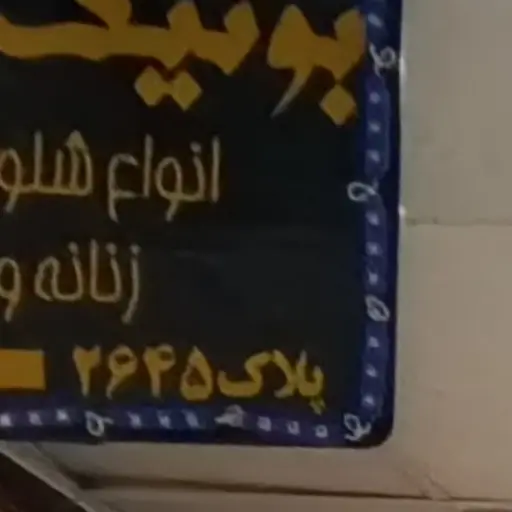 بوتیک
انواع شلو
زنانه و
پلاک ۲۶۴۵